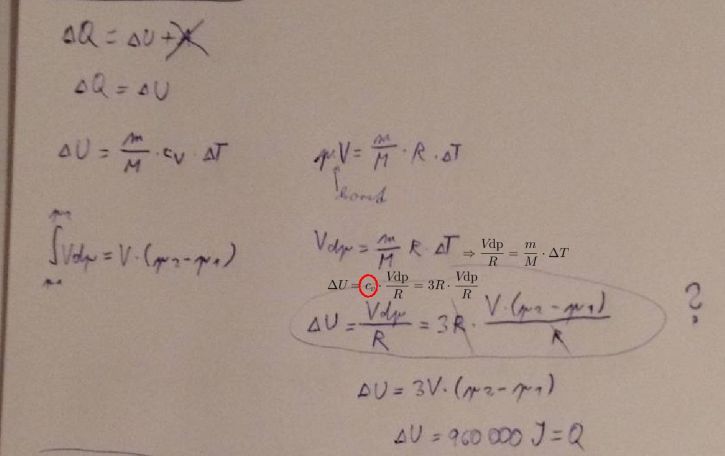 ΔQ = ΔU + A
ΔQ = ΔU
ΔU = m/M · cV · ΔT
pV = m/M · R · ΔT
konst
p2
∫Vdp = V · (p2 - p1)
p1
Vdp = m/M R · ΔT ⇒ Vdp/R = m/M · ΔT
ΔU = cv · Vdp/R = 3R · Vdp/R
ΔU = Vdp/R = 3R · V · (p2 - p1)/R ?
ΔU = 3V · (p2 - p1)
ΔU = 960 000 J = Q